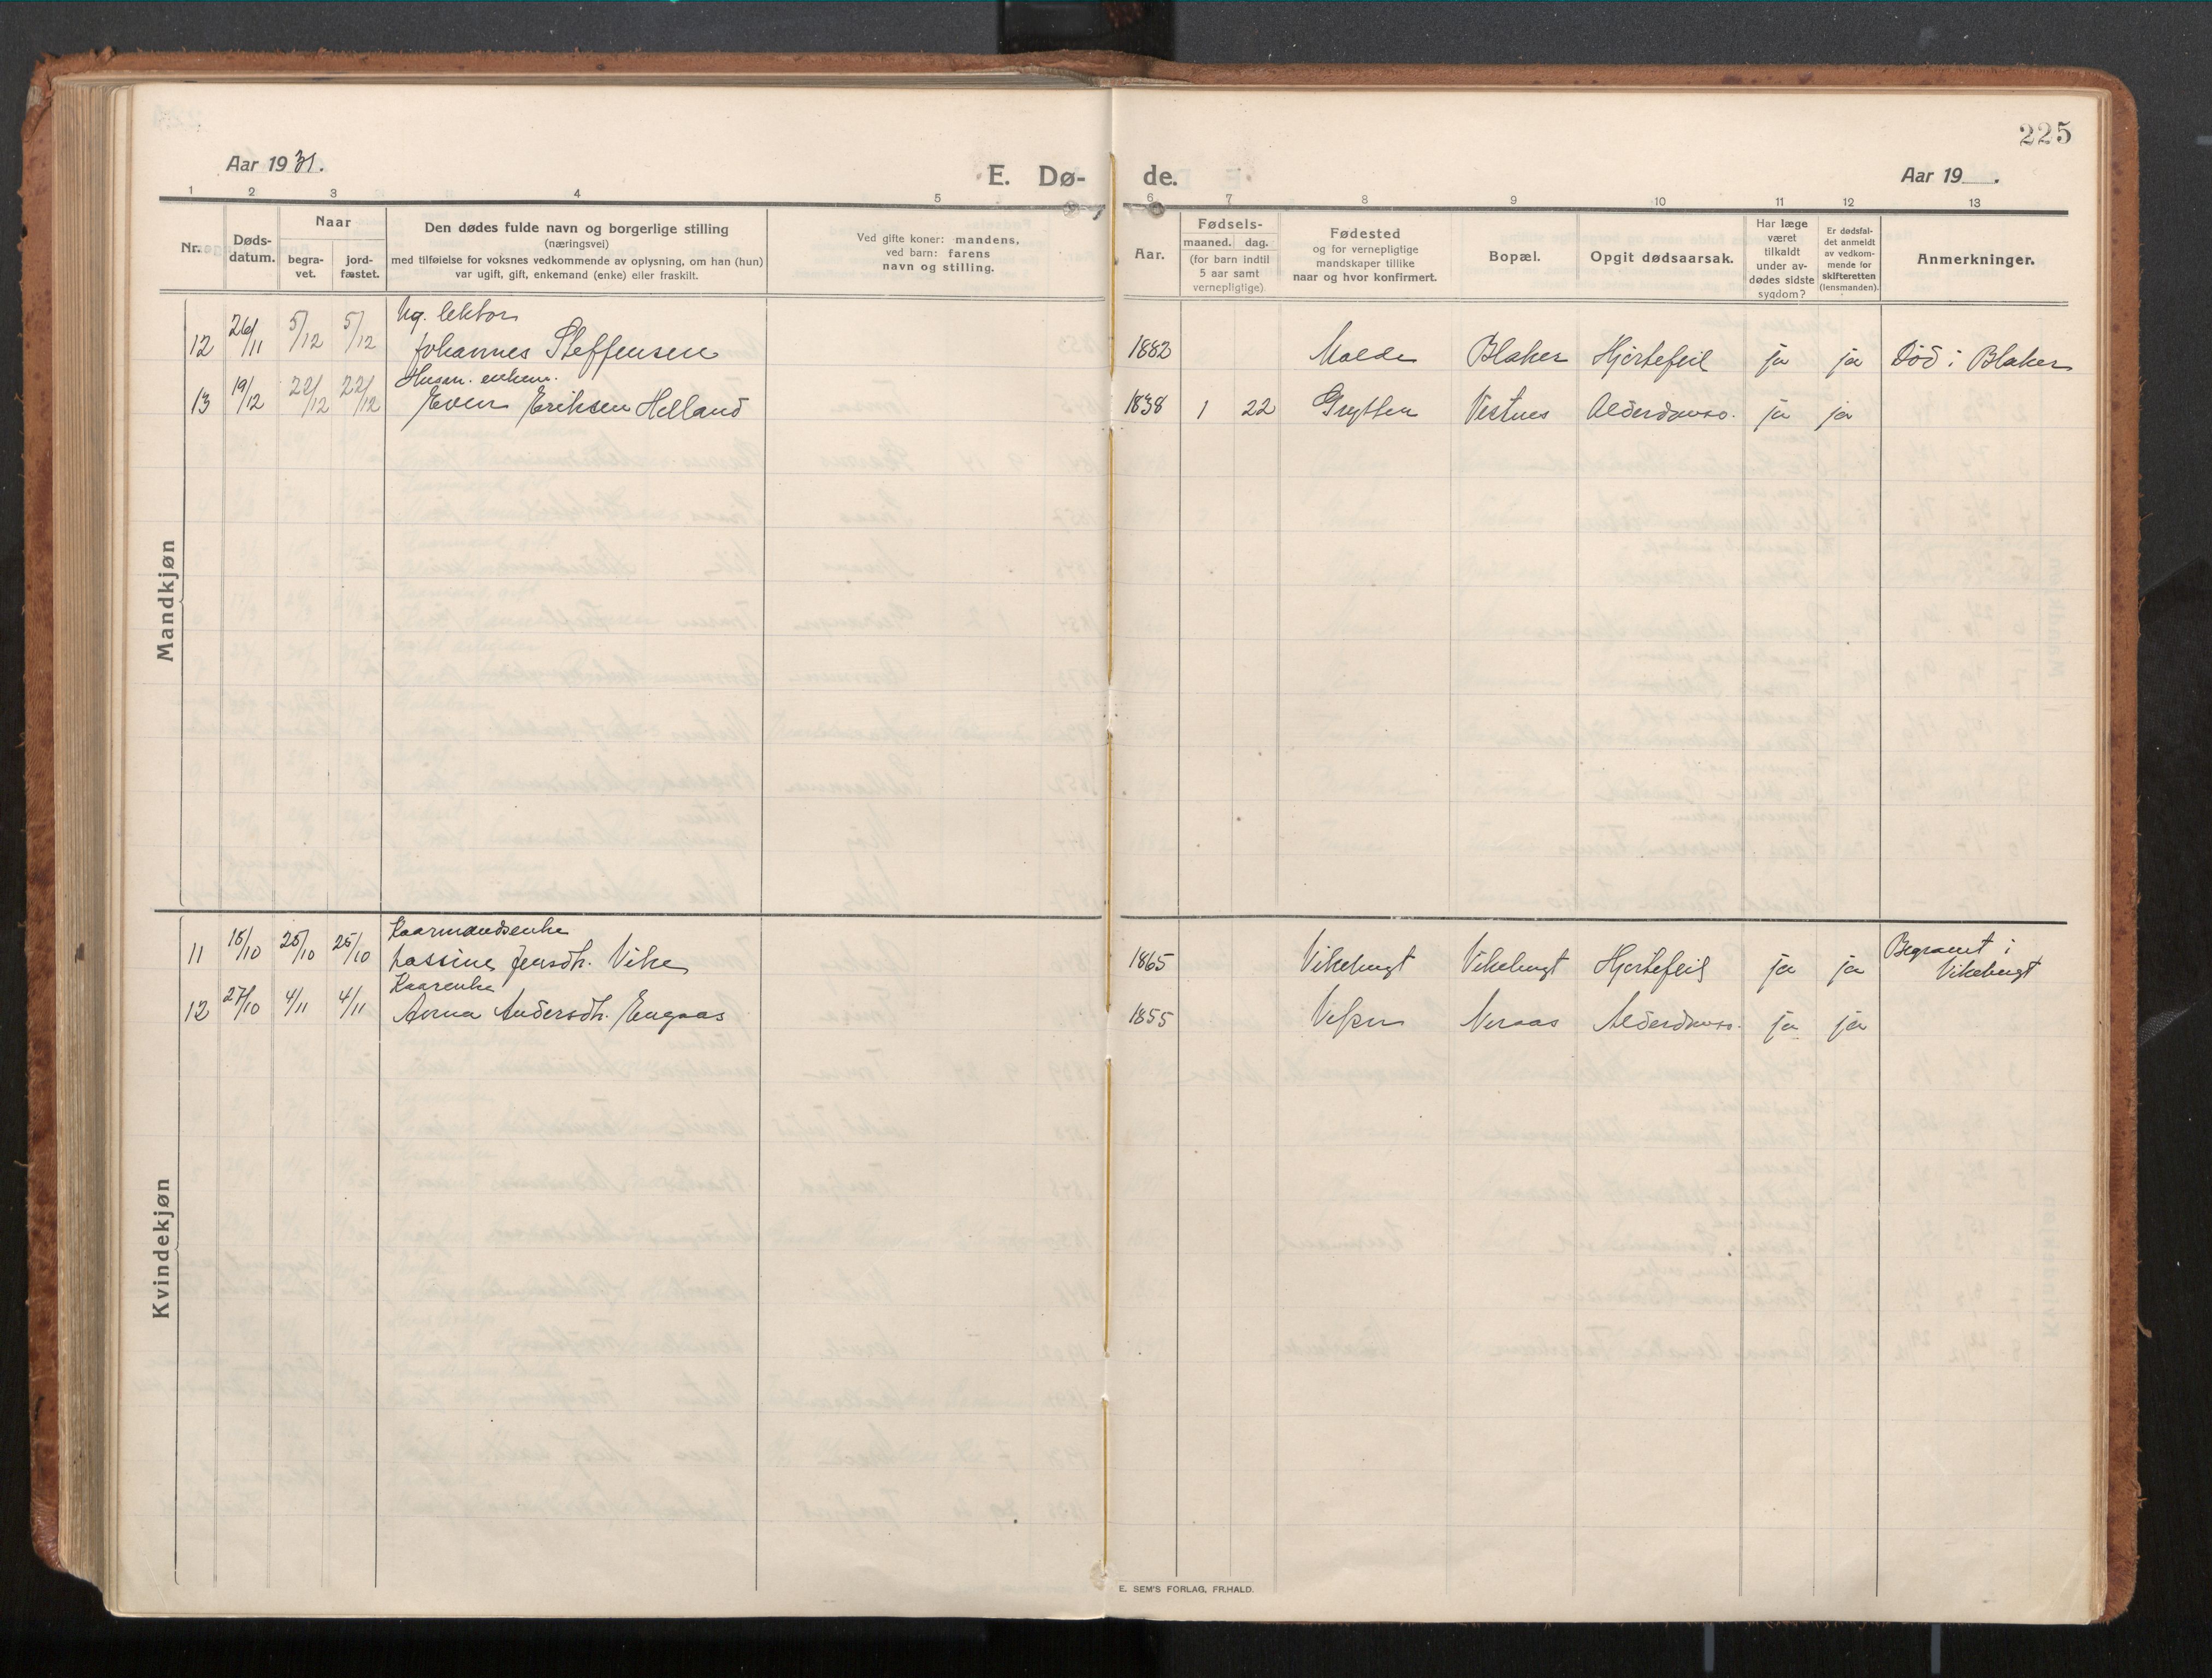 225
Aar 1931.
E. Dø-
de.
Aar 19   .
1 2 3 4 5 6 7 8 9 10 11 12 13
Nr.
Døds-
datum.
Naar
begra-
vet.
jord-
fæstet.
Den dødes fulde navn og borgerlige stilling
(næringsvei)
med tilføielse for voksnes vedkommende av oplysning, om han (hun)
var ugift, gift, enkemand (enke) eller fraskilt.
Ved gifte koner: mandens,
ved barn: farens
navn og stilling.
Aar.
Fødsels-
maaned. dag.
(for barn indtil
5 aar samt
vernepligtige).
Fødested
og for vernepligtige
mandskaper tillike
naar og hvor konfirmert.
Bopæl.
Opgit dødsaarsak.
Har læge
været
tilkaldt
under av-
dødes sidste
sygdom?
Er dødsfal-
det anmeldt
av vedkom-
mende for
skifteretten
(lensmanden).
Anmerkninger.
Mandkjøn
Ug. lektor
12 26/11 5/12 5/12 Johannes Steffensen 1882 Molde Blaker Hjertefeil ja ja Død i Blaker
Husm. enkem.
13 19/12 22/12 22/12 Even Eriksen Helland 1838 1 22 Grytten Vestnes Alderdomss. ja ja
Kvindekjøn
Kaarmandsenke
11 18/10 25/10 25/10 Lassine Jensdt. Vike 1865 Vikebugt Vikebugt Hjertefeil ja ja Begravet i
Vikebugt
Kaarenke
12 27/10 4/11 4/11 Anna Andersdt. Engaas 1855 Neraas Alderdomss. ja ja
E. SEM'S FORLAG, FR.HALD.